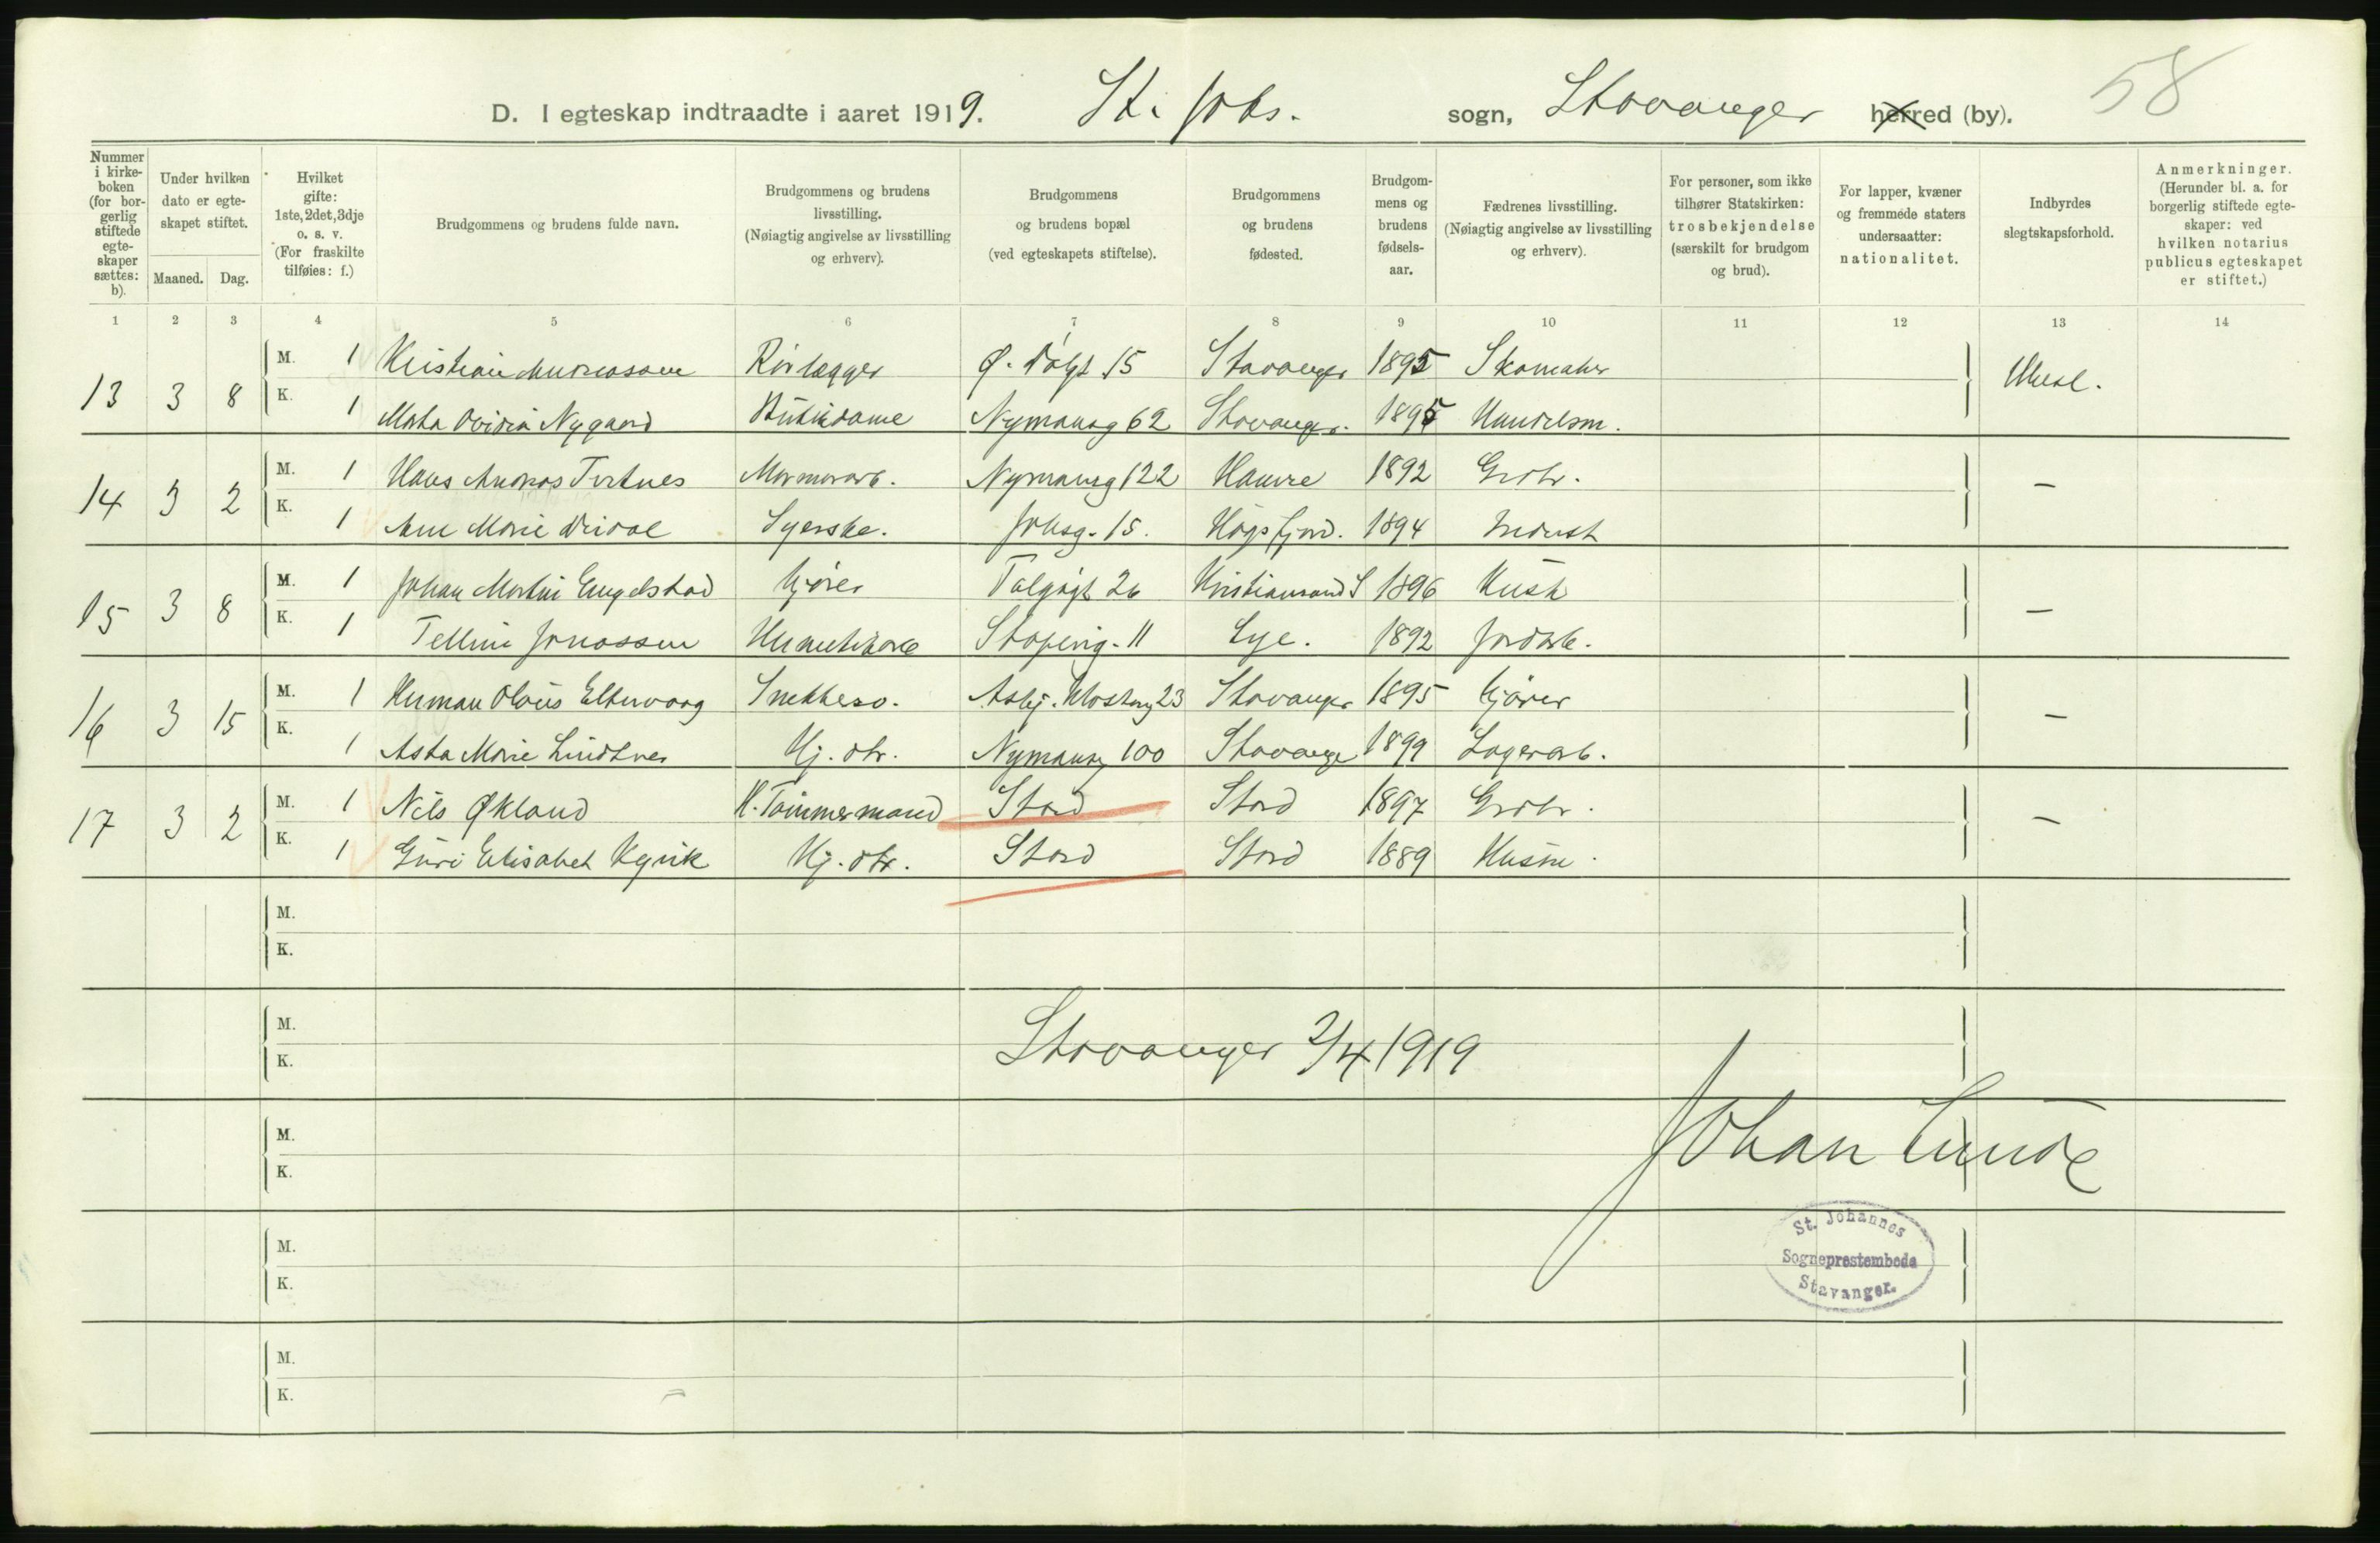 58
D. I egteskap indtraadte i aaret 1919. St. Johs. sogn, Stavanger herred (by).
Nummer i kirke-boken (for bor-gerlig stiftede egte-skaper sættes: b).
Under hvilken dato er egte-skapet stiftet.
Maaned. Dag.
Hvilket gifte: 1ste, 2det, 3dje o. s. v. (For fraskilte tilføies: f.)
Brudgommens og brudens fulde navn.
Brudgommens og brudens livsstilling. (Nøiagtig angivelse av livsstilling og erhverv).
Brudgommens og brudens bopæl (ved egteskapets stiftelse).
Brudgommens og brudens fødested.
Brudgom-mens og brudens fødsels-aar.
Fædrenes livsstilling. (Nøiagtig angivelse av livsstilling og erhverv).
For personer, som ikke tilhører Statskirken: trosbekjendelse (særskilt for brudgom og brud).
For lapper, kvæner og fremmede staters undersaatter: nationalitet.
Indbyrdes slegtskapsforhold.
Anmerkninger. (Herunder bl. a. for borgerlig stiftede egte-skaper: ved hvilken notarius publicus egteskapet er stiftet.)
1 2 3 4 5 6 7 8 9 10 11 12 13 14
13 3 8 M. 1 Kristian Andreassen Rørlægger Stavanger 1895 Skomaker
K. 1 Nygaard Butikdame Nymansg 62 Stavanger. 1895 Handelsm.
14 3 2 M. 1 Hans Andreas Tertnes Marmorarb. Nymansg 122 Hamre 1892 Grdbr. —
K. 1 Ane Marie Syerske. Johsg. 15. Høgsfjord. 1894 Inderst
15 3 8 M. 1 Johan Martin Engelstad Kjører 26 Kristiansand S 1896 Kusk —
K. 1 Jonassen Hermetikarb Lye. 1892 Jordarb.
16 3 15 M. 1 Herman Olaus Eltervaag Snekkersv. Asbj. Klosterg 23 Stavanger 1895 Kjører —
K. 1 Asta Marie Lindtner Hj. dtr. Nymansg 100 Stavanger 1899 Lagerarb.
17 3 2 M. 1 Nils Økland H. Tømmermand Stord Stord 1897 Grdbr. —
K. 1 Guri Elisabet Kyvik Hj. dtr. Stord Stord 1889 Husm.
M.
K.
M.
K.
Stavanger 2/4 1919
M.
K.
Johan Lunde
M.
K.
St. Johannes
Sogneprestembede
Stavanger.
M.
K.